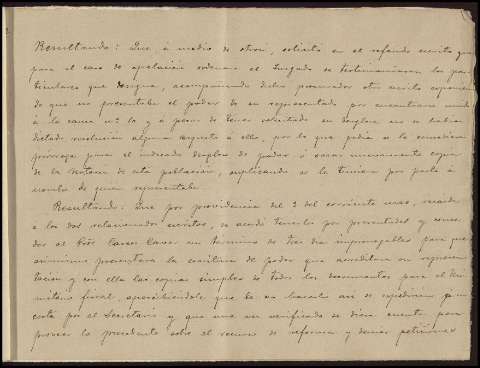 Resultando: Que, á medio de otrosi, solicita en el referido escrito que
para el caso de apelación ordenara el Juzgado se testimoniaran los par-
ticulares que designa, acompañando dicho procurador otro escrito exponiendo
de que no presentaba el poder de su representado por encontrarse unido
á la causa nº la y á pesar de tener solicitado su desglose no se había
dictado resolución alguna respecto á ello, por lo que pedía se le concediera
prórroga para el indicado desglose de poder ó sacar nuevamente copia
de la Notaría de esta población, suplicando se le tuviera por parte á
nombre de quien representaba.
Resultando: Que por providencia del 3 del corriente mes, recaida
á los dos relacionados escritos, se acordó tenerlos por presentados y
dar al Pror. en término de tres días improrrogables para que
presentara la escritura de poder que acreditara su represen-
tación y con ella las copias simples de todos los documentos para el Mi-
nisterio fiscal, apercibiéndole que de no hacerlo así se expedirían á su
costa por el Secretario y que una vez verificado se diera cuenta para
proveer lo procedente sobre el recurso de reforma y demás peticiones